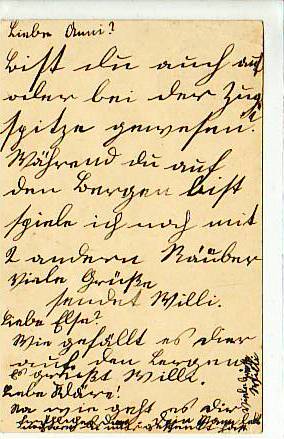 Liebe Anni?
Bist du auch auf
oder bei der Zug
spitze gewesen?
Während du auf
den Bergen bist
spiele ich noch mit
2 andern Räuber
Viele Grüße
sendet Willi.
Liebe Else?
Wie gefällt es dier
auf den Bergen
Es grüßt Willi.
Liebe Kläre!
Na wie geht es dir
Viele Grüße
Willi